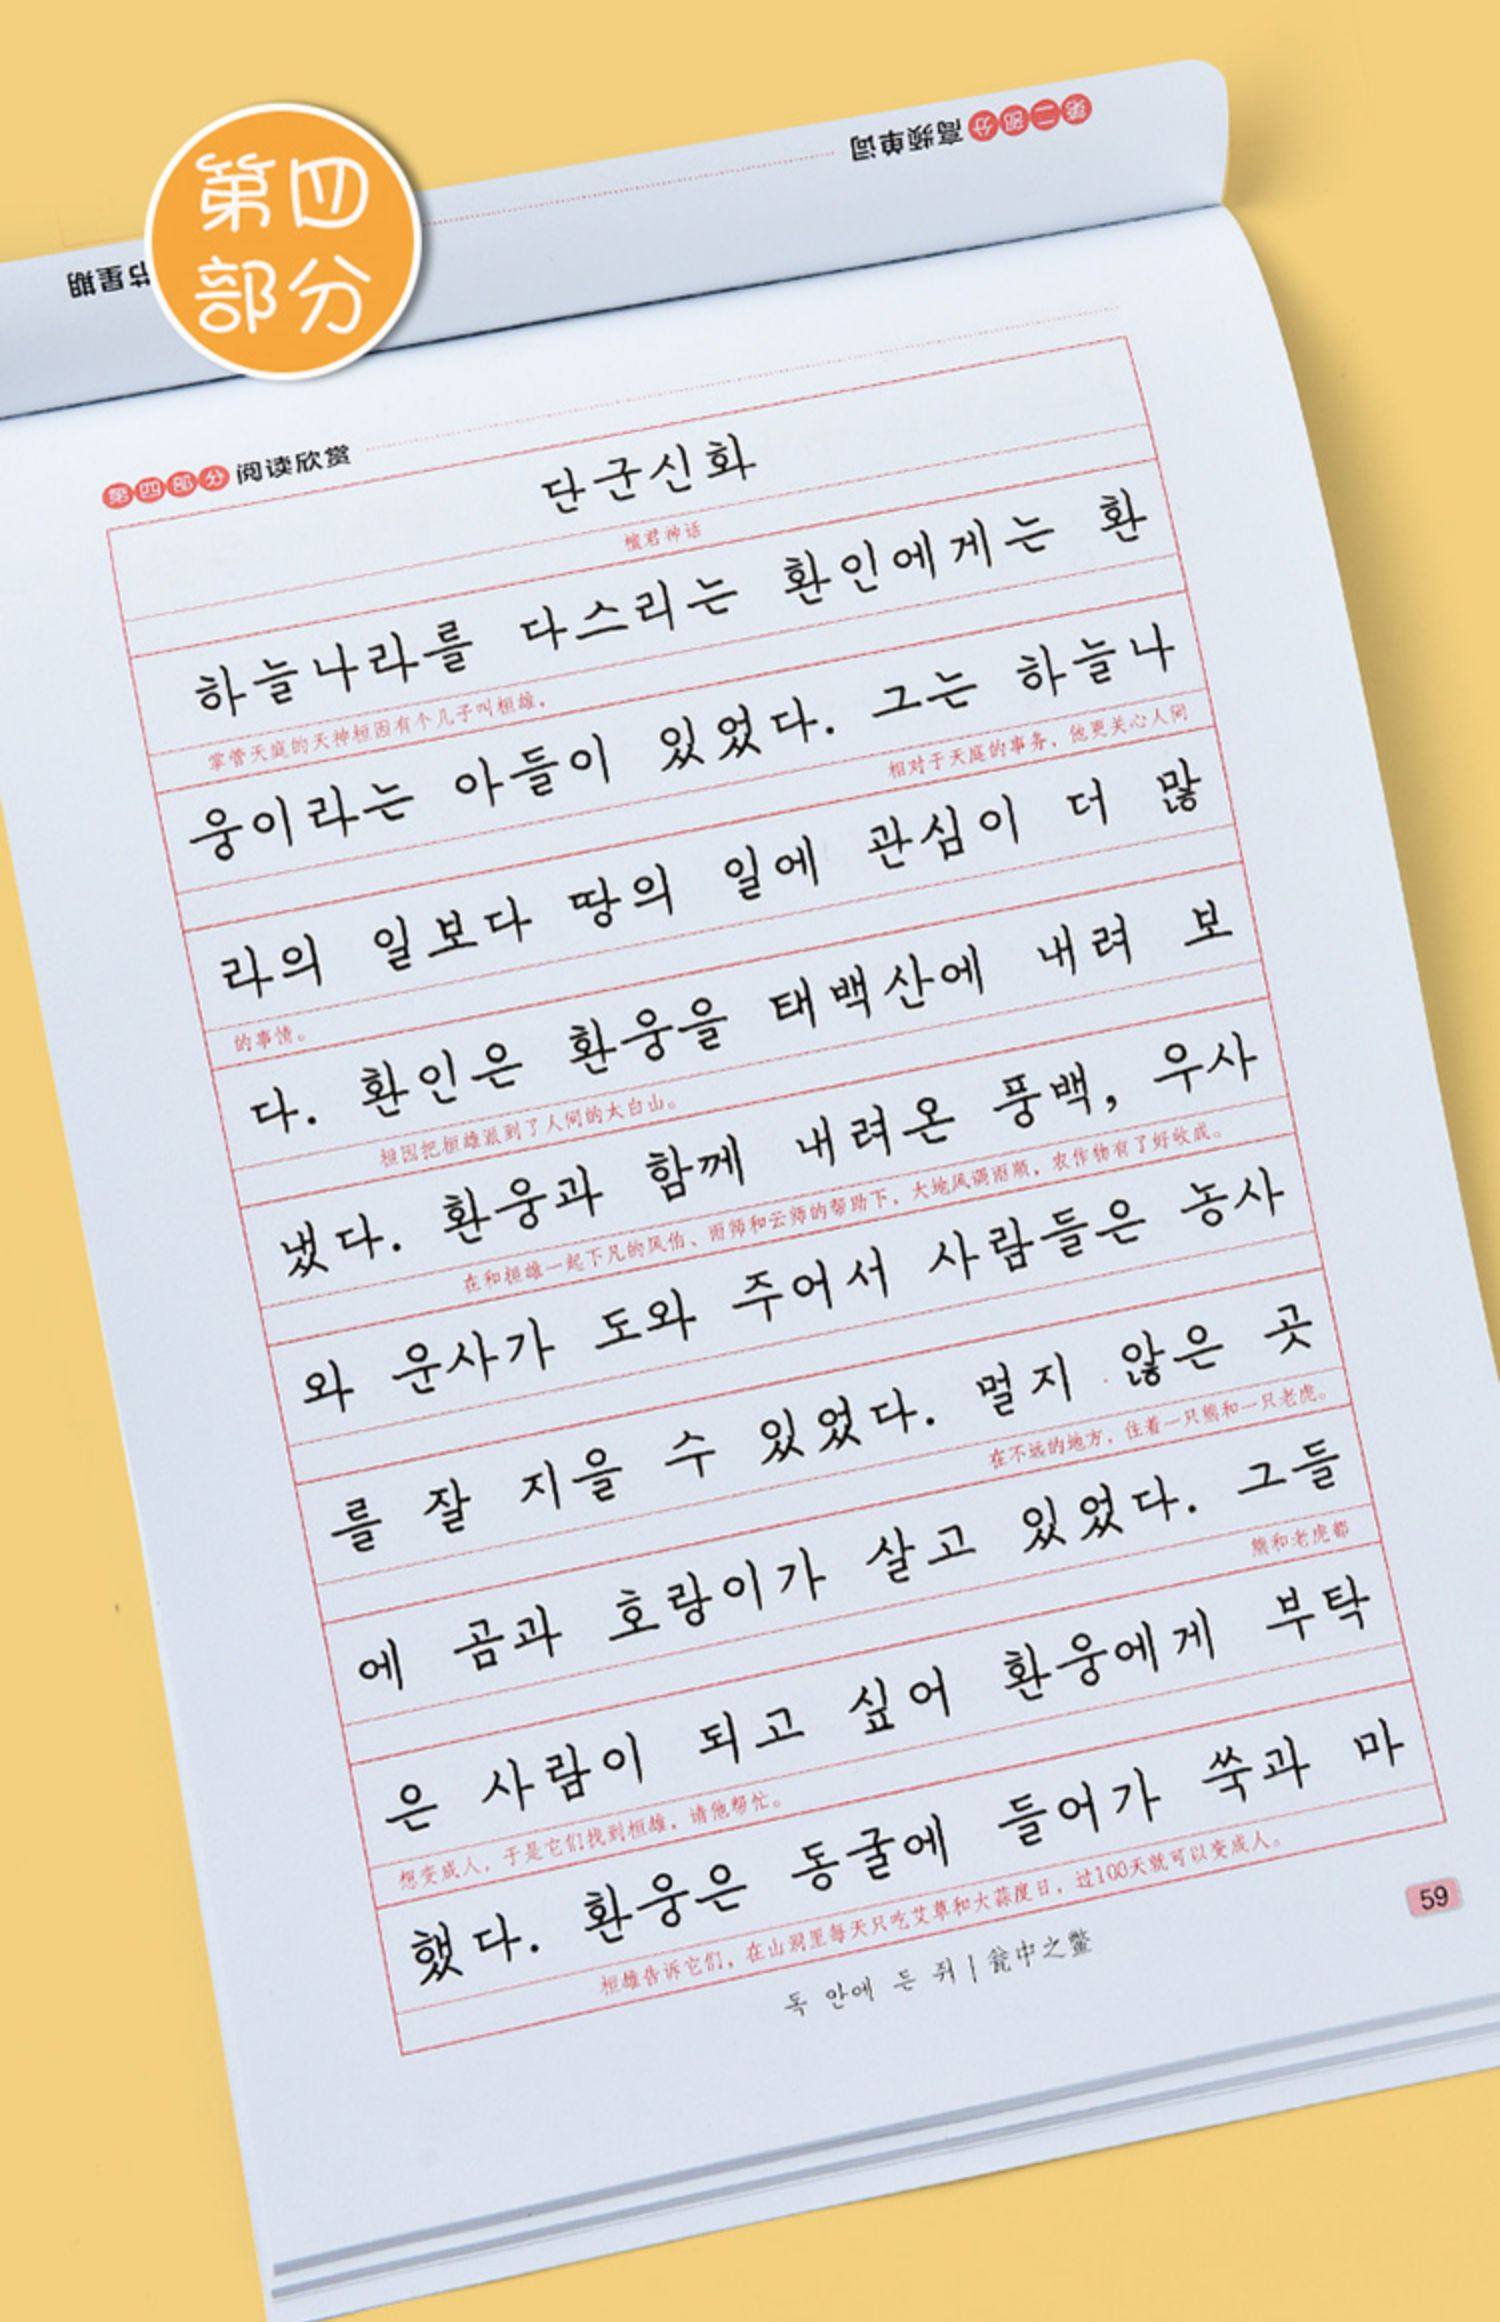 第二部分 高频单词
节星期
第四
部分
第四部分 阅读欣赏
단군신화
檀君神话
하늘나라를 다스리는 환인에게는 환
掌管天庭的天神桓因有个儿子叫桓雄。
웅이라는 아들이 있었다. 그는 하늘나
相对于天庭的事务，他更关心人间
라의 일보다 땅의 일에 관심이 더 많
的事情。
다. 환인은 환웅을 태백산에 내려 보
桓因把桓雄派到了人间的太白山。
냈다. 환웅과 함께 내려온 풍백, 우사
在和桓雄一起下凡的风伯、雨师和云师的帮助下，大地风调雨顺，农作物有了好收成。
와 운사가 도와 주어서 사람들은 농사
를 잘 지을 수 있었다. 멀지 않은 곳
在不远的地方，住着一只熊和一只老虎。
에 곰과 호랑이가 살고 있었다. 그들
熊和老虎都
은 사람이 되고 싶어 환웅에게 부탁
想变成人，于是它们找到桓雄，请他帮忙。
했다. 환웅은 동굴에 들어가 쑥과 마
桓雄告诉它们，在山洞里每天只吃艾草和大蒜度日，过100天就可以变成人。
독 안에 든 쥐 | 瓮中之鳖
59